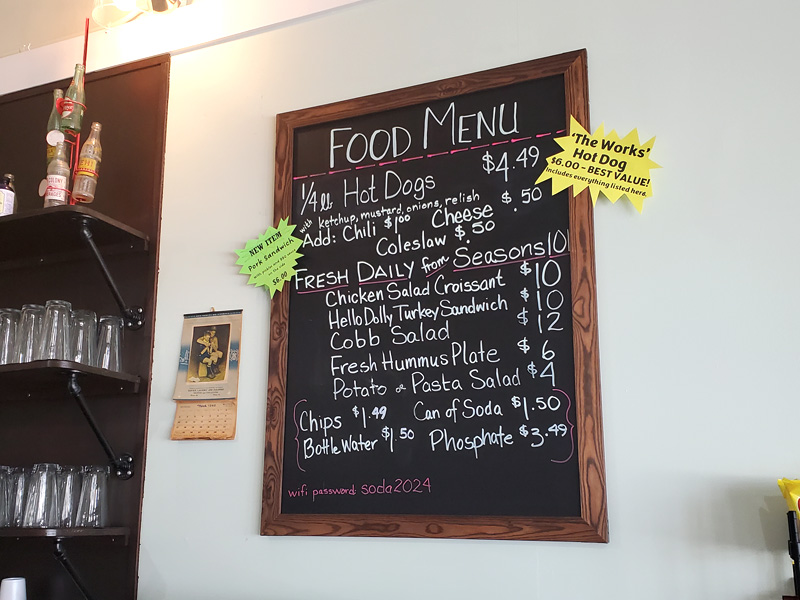 FOOD MENU
1/4 lb. HOT DOGS $4.49
with ketchup, mustard, onions, relish
Add: Chili $1.00 Cheese $.50
Coleslaw $.50
FRESH DAILY from Seasons101
Chicken Salad Croissant $10
Hello Dolly Turkey Sandwich $10
Cobb Salad $12
Fresh Hummus Plate $6
Potato or Pasta Salad $4
Chips $1.49 Can of Soda $1.50
Bottle Water $1.50 Phosphate $3.49
wifi password: soda2024
'The Works'
Hot Dog
$6.00 – BEST VALUE!
Includes everything listed here.
NEW ITEM
Pork Sandwich
on the side
$6.00